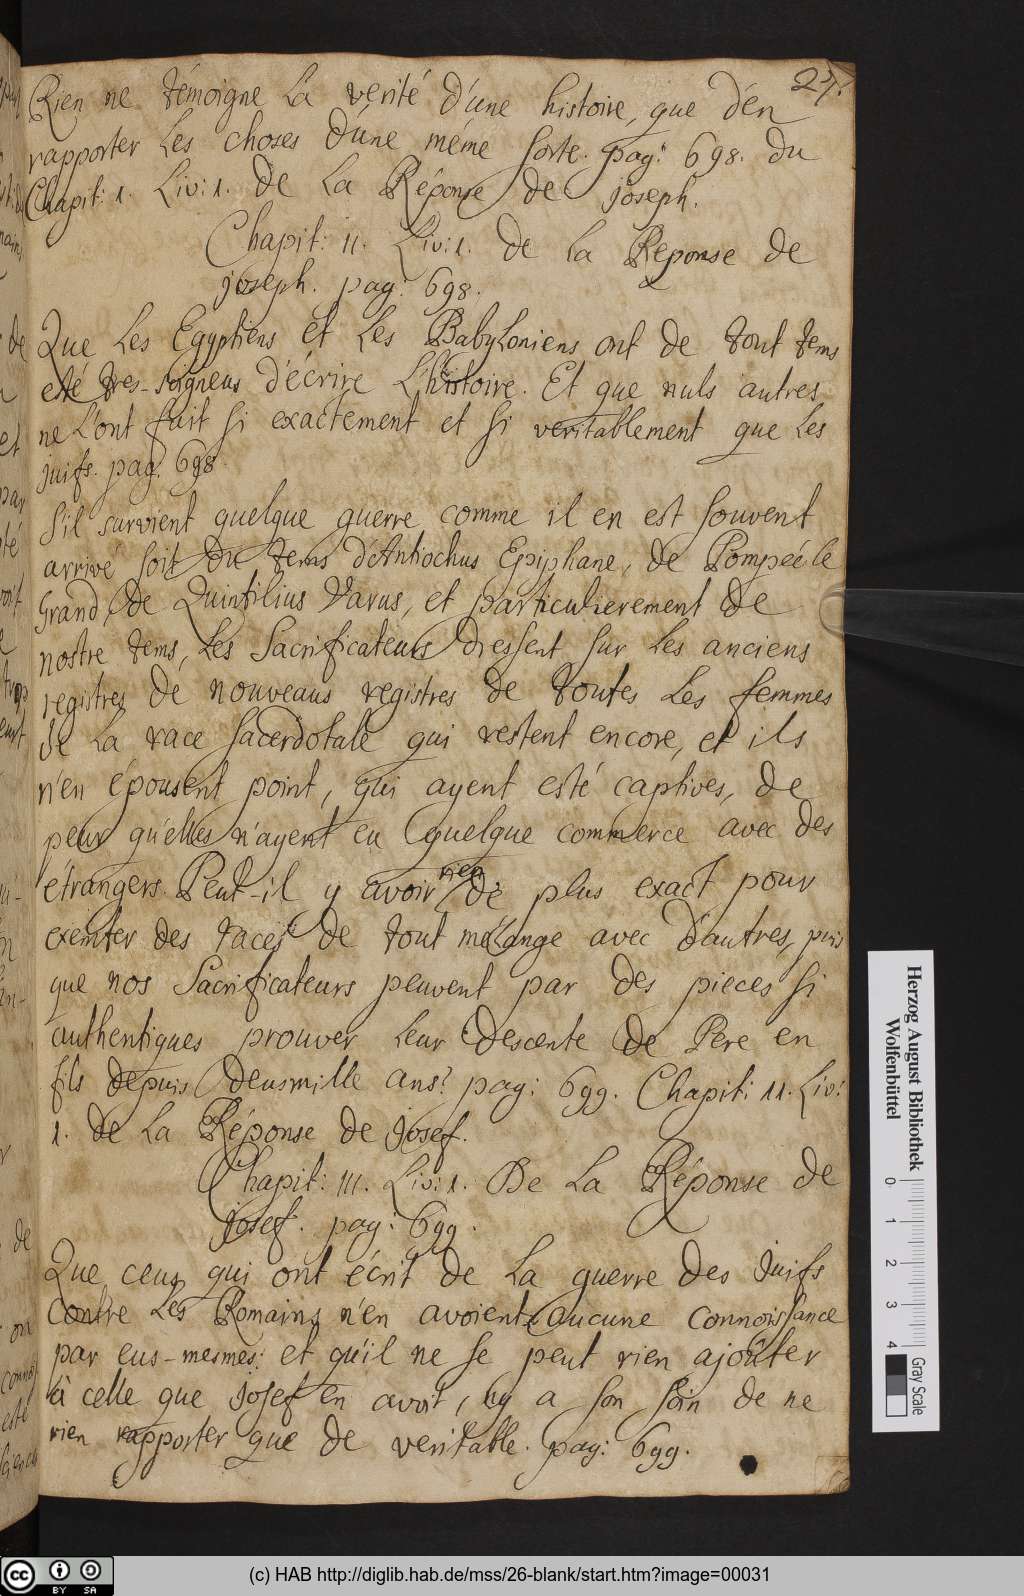 27.
Rien ne témoigne la verité d'une histoire, que d'en
rapporter les choses d'une méme sorte. pag: 698. du
Chapit: 1. Liv: 1. de la Réponse de joseph.
Chapit: 11. Liv: 1. de la Reponse de
joseph. pag: 698.
Que les Egyptiens et les Babyloniens ont de tout tems
esté tres-soigneus d'écrire l'histoire. Et que nuls autres
ne l'ont fait si exactement et si veritablement que les
juifs. pag. 698.
S'il survient quelque guerre comme il en est souvent
arrivé soit du tems d'Antiochus Epiphane, de Pompée le
Grand, de Quintilius Varus, et particulierement de
nostre tems, les Sacrificateurs dressent sur les anciens
registres de nouveaus registres de toutes les femmes
de la race sacerdotale qui restent encore, et ils
n'en épousent point, qui ayent esté captives, de
peur qu'elles n'ayent eu quelque commerce avec des
étrangers. Peut-il y avoir rien de plus exact pour
exemter des races de tout mélange avec d'autres, puis
que nos Sacrificateurs peuvent par des pieces si
authentiques prouver leur descente de Pere en
fils depuis deusmille ans? pag: 699. Chapit: 11. Liv:
1. de la Réponse de josef.
Chapit: 111. Liv: 1. De la Réponse de
josef. pag: 699.
Que ceus qui ont écrit de la guerre des Juifs
contre les Romains n'en avoient aucune connoissance
par eus-mesmes: et qu'il ne se peut rien ajoûter
à celle que josef en avoit, ny a son soin de ne
rien rapporter que de veritable. pag: 699.
Herzog August Bibliothek
Wolfenbüttel
0 1 2 3 4
Gray Scale
(c) HAB http://diglib.hab.de/mss/26-blank/start.htm?image=00031
cc BY SA